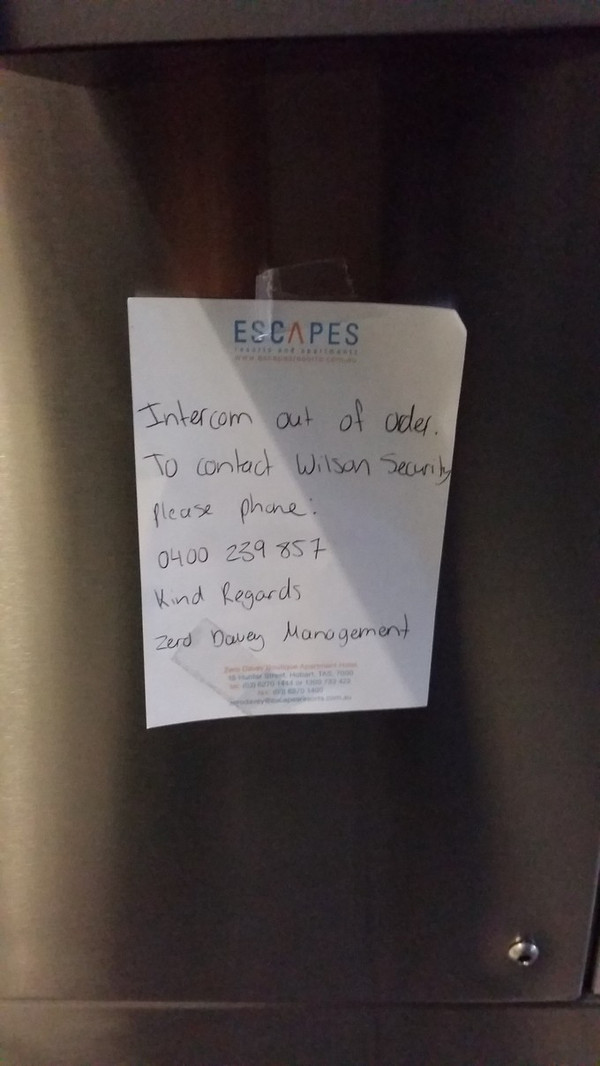 ESCAPES
resorts and apartments
www.escapesresorts.com.au
Intercom out of oder.
To contact Wilson Security
please phone:
0400 239 857
Kind Regards
Zero Davey Management
Zero Davey Boutique Apartment Hotel
15 Hunter Street, Hobart, TAS, 7000
zerodavey@escapesresorts.com.au